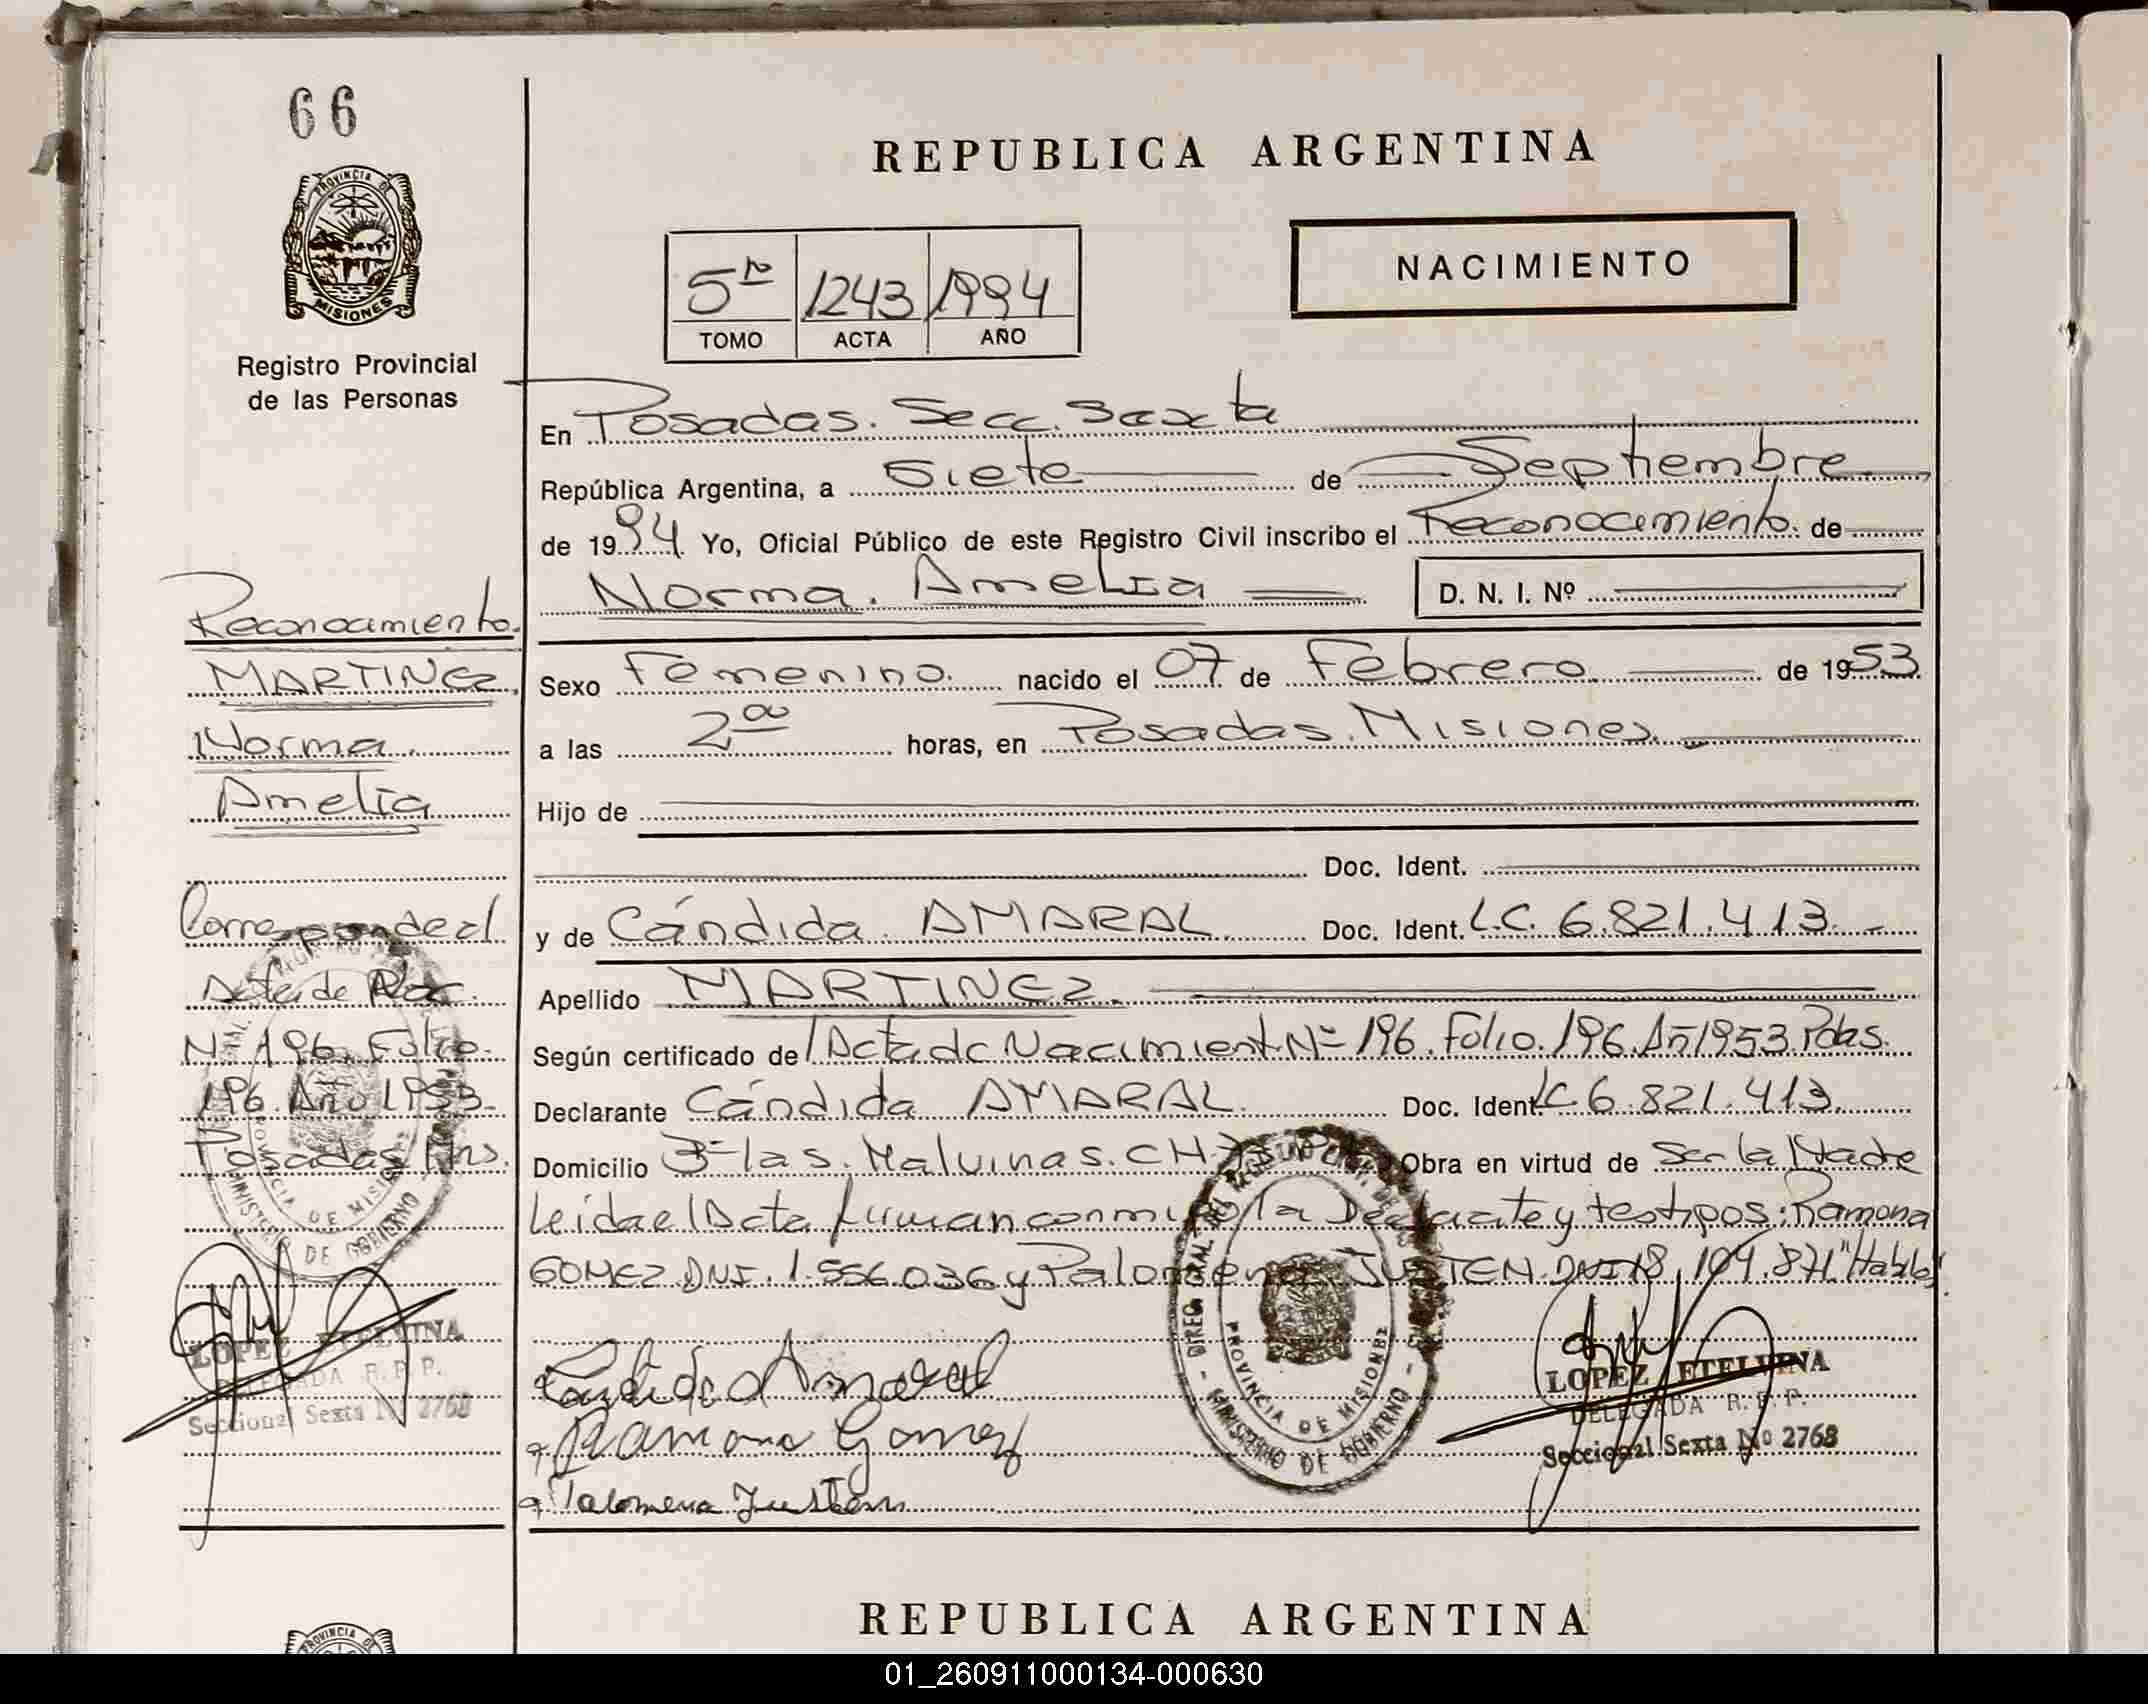 66
PROVINCIA DE
MISIONES
Registro Provincial
de las Personas
REPUBLICA ARGENTINA
NACIMIENTO
5º 1243 1994
TOMO ACTA AÑO
En Posadas. Secc. Sexta
República Argentina, a Siete de Septiembre
de 1994 Yo, Oficial Público de este Registro Civil inscribo el Reconocimiento de
Norma. Amelia D. N. I. Nº
Sexo Femenino. nacido el 07 de Febrero de 1953
a las 2 horas, en Posadas. Misiones.
Hijo de
Doc. Ident.
y de Cándida AMARAL Doc. Ident. L.C. 6.821.413.
Apellido MARTINEZ.
Según certificado de Acta de Nacimient Nº 196. Folio. 196. Añ 1953. Pdas.
Declarante Cándida AMARAL. Doc. Ident. LC 6.821.413.
Domicilio 3º las. Malvinas. CH. Obra en virtud de Ser la Madre
Leida el Acta firman conmigo la y testigos: Ramona
GOMEZ DNI. 1.556.036 y Palomena JUSTEN. DNI 18.109.871. "Habiles"
Reconocimiento.
MARTINEZ.
Norma.
Amelia
Corresponde al
Acta de
Nº 196. Folio.
196. Año 1953.
Posadas Mns.
LOPEZ ETELVINA
DELEGADA R. P. P.
Seccional Sexta Nº 2768
Candida Amaral
Ramona Gomez
Palomena Justen
PROVINCIA DE MISIONES
MINISTERIO DE GOBIERNO
LOPEZ ETELVINA
DELEGADA R. P. P.
Seccional Sexta Nº 2768
REPUBLICA ARGENTINA
PROVINCIA DE
01_260911000134-000630